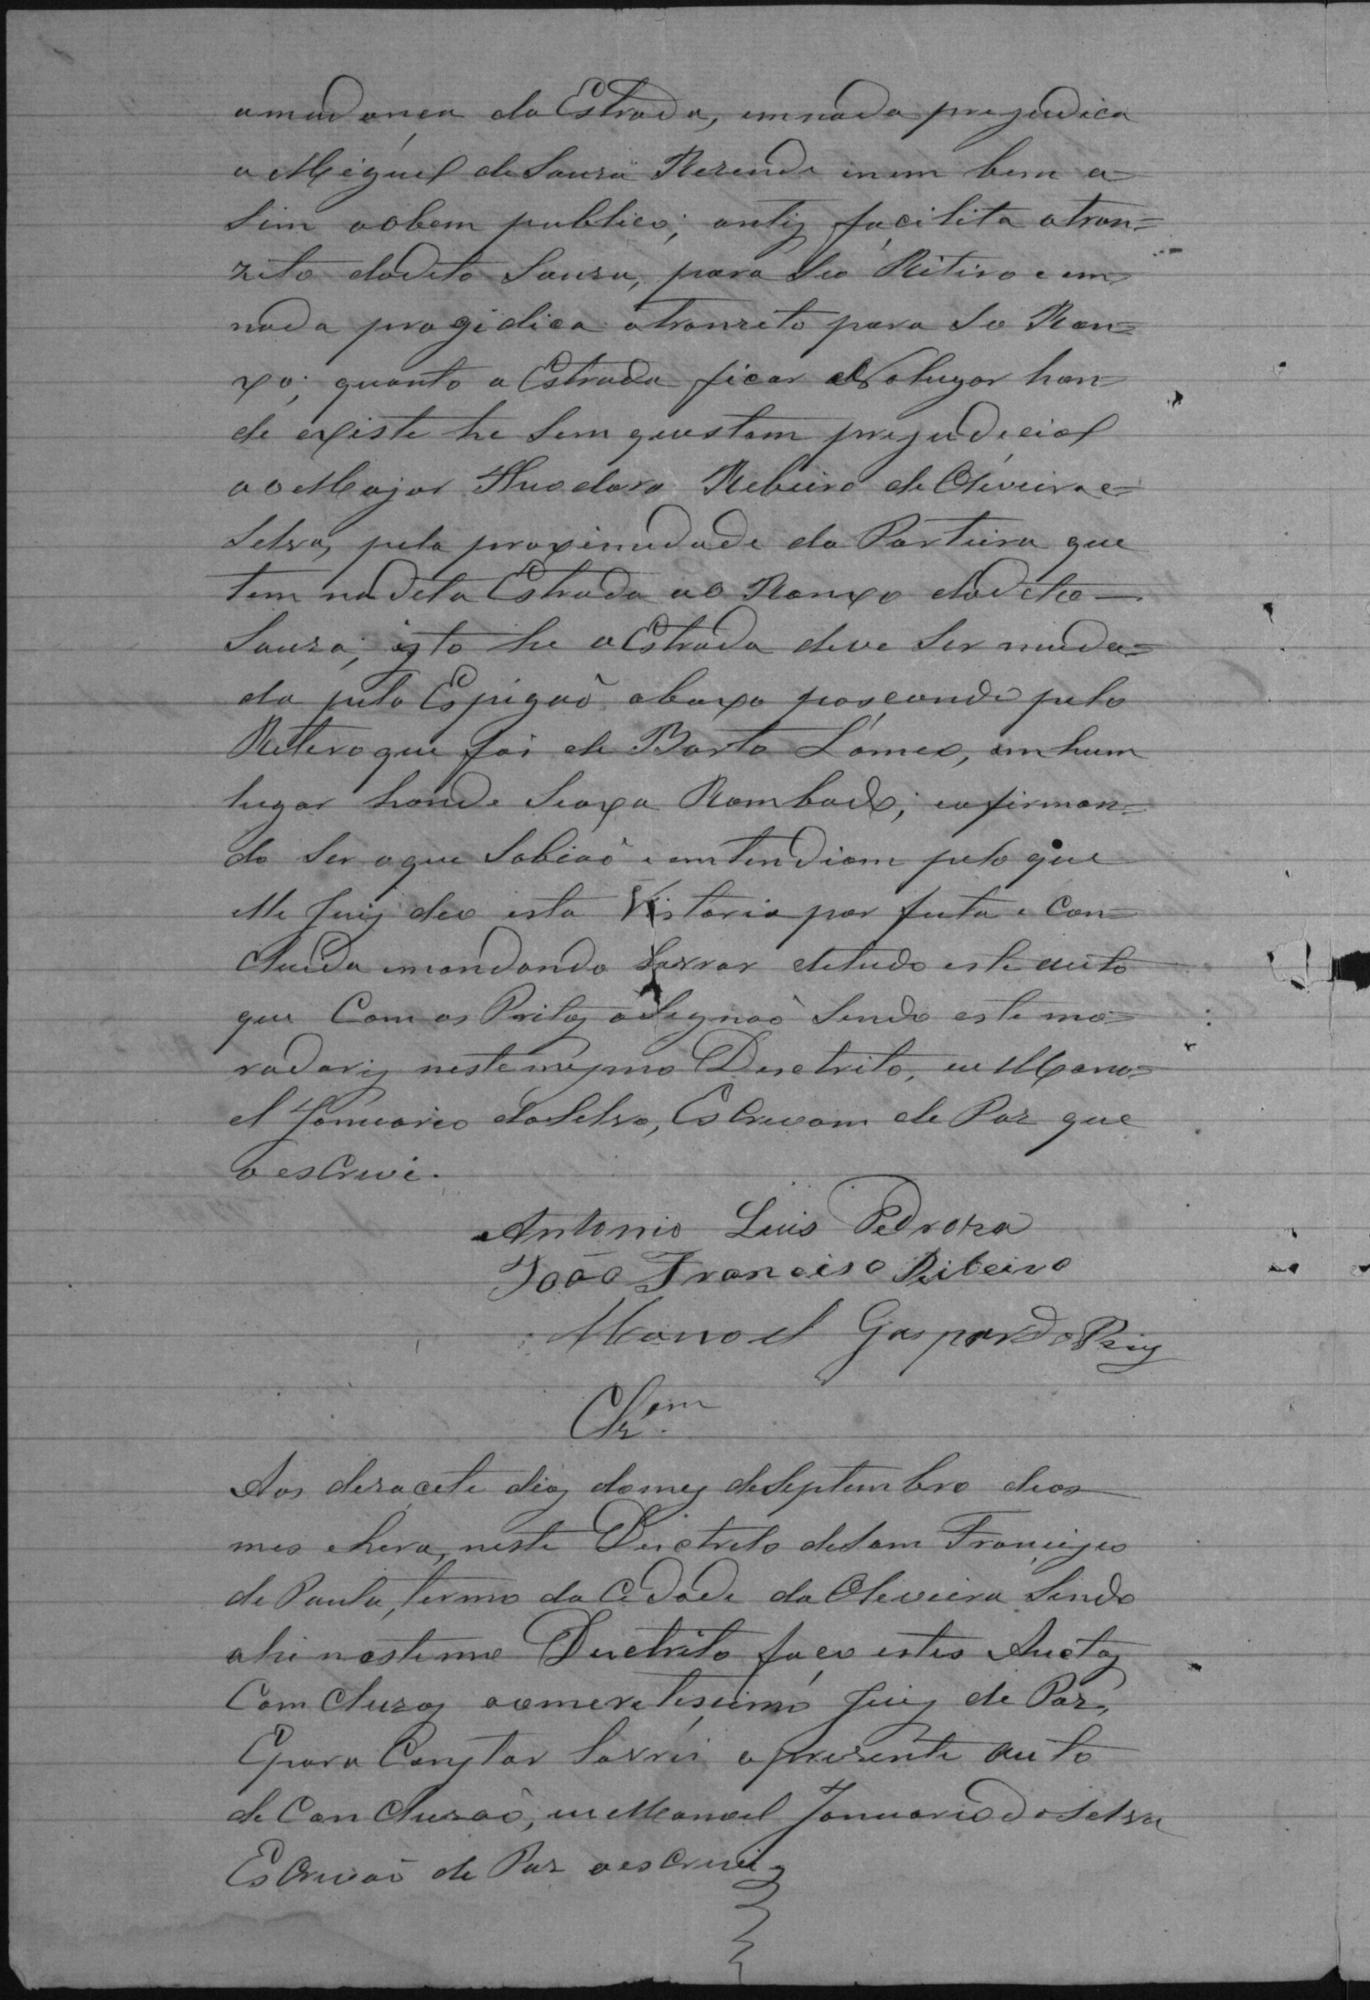 amudança da Estrada, emnada prejudica
a Miguel de Souza Rezende inem bem a=
sim aobem publico; antis facilita otran=
zito dodito Souza, para seo Ritiro e em
nada progidica otranzito para so Ran=
xo; quanto a Estrada ficar no lugar hon=
de existe he sem questam prejudicial
aoMajor Theodoro Ribeiro de Oliveira e=
Selva, pela proximidade da Porteira que
tem na dita Estrada ao Ranxo dodito—
Souza; isto he aEstrada deve ser muda=
da pelo Espigaõ abaxo pascando pelo
Ritiro que foi de Barto Lomeo, em hum
lugar honde seaxa Rombado; eafirman=
do ser oque sabiaõ e entendiam pelo que
elle Juiz deo esta Vistoria por feita e Con=
cluida emandando lavrar detudo este auto
que Com os Peritos asignaõ sendo este mo=
radoris neste mesmo Disctrito, eu Mano=
el Januario da Selva, Escrivam de Paz que
o escrevi.
Antonio Luis Pedroza
João Francisco Ribeiro
Manoel Gaspar do Reis
Clzam
Aos dezacete dias domes deSeptembro deos
mes ehera, neste Disctrito desam Francisco
de Paula, termo da Cidade da Oliveira sendo
ahi nesteme Disctrito faco estes Auctos
Com cluzos aomeretisimo Juiz de Paz,
Epara Constar lavrei opresente auto
de Concluzaõ, eu Manoel Januario da Selva
Escrivaõ de Paz oescrevi